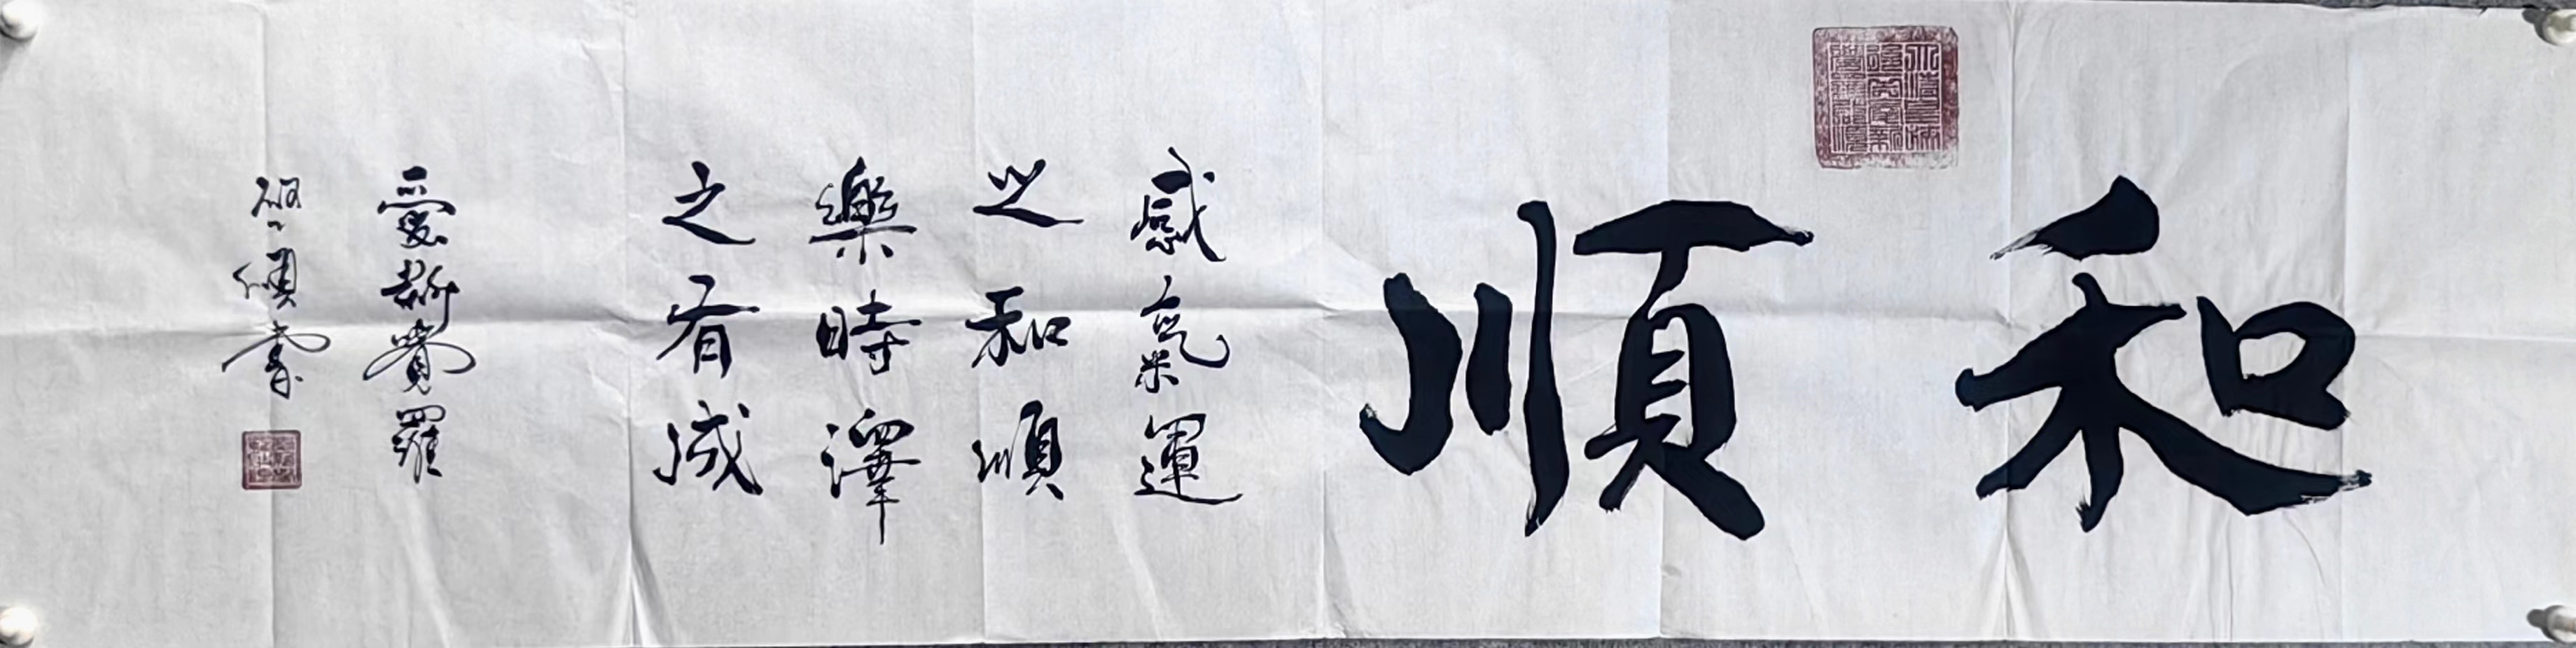 和順
感氣運
之和順
樂時澤
之有成
愛新覺羅
啟傾書